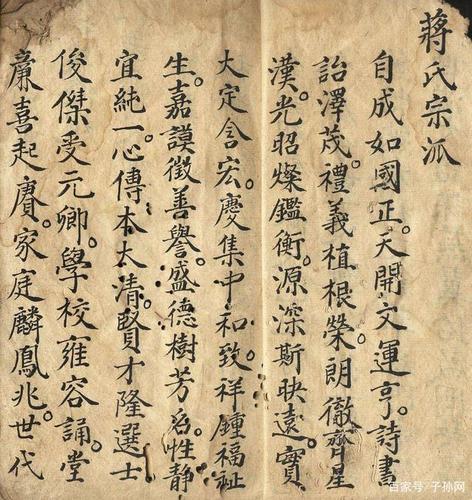 蔣氏宗派
自成如國正。天開文運亨。詩書
詒澤茂。禮義植根榮。朗徹齊星
漢。光昭燦鑑衡。源深斯映遠。寶
大定含宏。慶集中和致。祥鍾福祉
生。嘉謨徵善譽。盛德樹芳名。性靜
宜純一。心傳本太清。賢才隆選士
俊傑受元卿。學校雍容誦。堂
廉喜起賡。家庭麟鳳兆。世代
百家号/子孙网